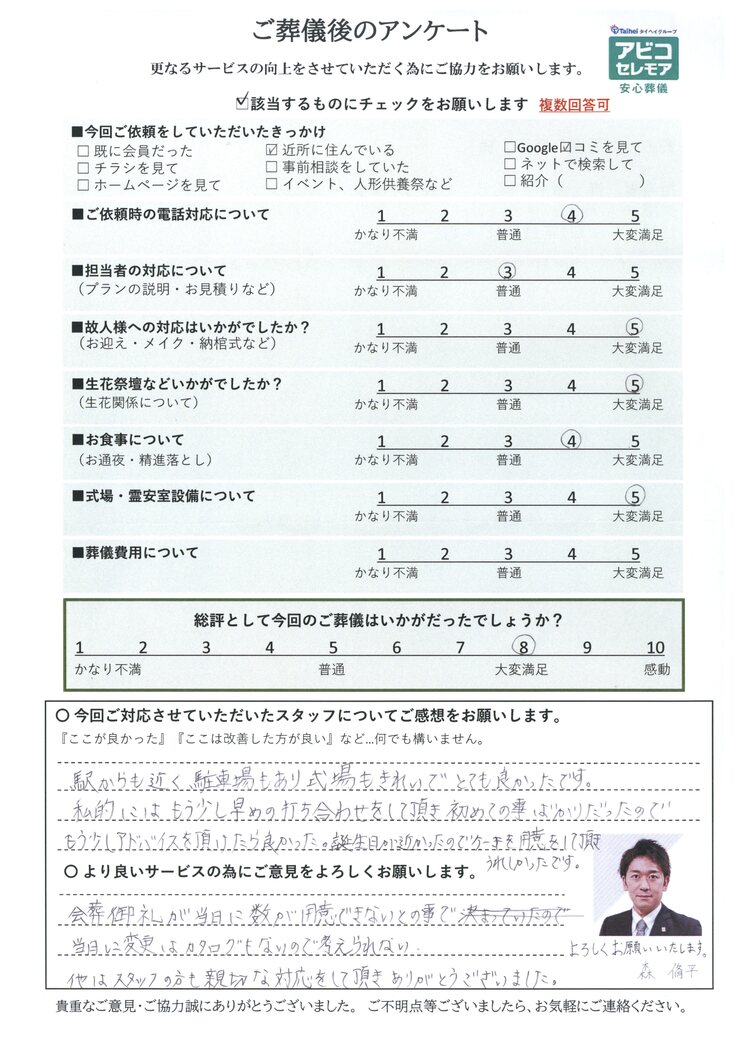 ご葬儀後のアンケート
Taihei タイヘイグループ
アビコ
セレモア
安心葬儀
更なるサービスの向上をさせていただく為にご協力をお願いします。
☑該当するものにチェックをお願いします 複数回答可
■今回ご依頼をしていただいたきっかけ
□ 既に会員だった ☑ 近所に住んでいる □Google☑コミを見て
□ チラシを見て □ 事前相談をしていた □ ネットで検索して
□ ホームページを見て □ イベント、人形供養祭など □ 紹介（ ）
■ご依頼時の電話対応について 1 2 3 4 5
かなり不満 普通 大変満足
■担当者の対応について 1 2 3 4 5
（プランの説明・お見積りなど） かなり不満 普通 大変満足
■故人様への対応はいかがでしたか？ 1 2 3 4 5
（お迎え・メイク・納棺式など） かなり不満 普通 大変満足
■生花祭壇などいかがでしたか？ 1 2 3 4 5
（生花関係について） かなり不満 普通 大変満足
■お食事について 1 2 3 4 5
（お通夜・精進落とし） かなり不満 普通 大変満足
■式場・霊安室設備について 1 2 3 4 5
かなり不満 普通 大変満足
■葬儀費用について 1 2 3 4 5
かなり不満 普通 大変満足
総評として今回のご葬儀はいかがだったでしょうか？
1 2 3 4 5 6 7 8 9 10
かなり不満 普通 大変満足 感動
〇 今回ご対応させていただいたスタッフについてご感想をお願いします。
『ここが良かった』『ここは改善した方が良い』など…何でも構いません。
駅からも近く駐車場もあり式場もきれいでとても良かったです。
私的にはもう少し早めの打ち合わせをして頂き初めての事ばかりだったので
もう少しアドバイスを頂けたら良かった。誕生日が近かったのでケーキを用意をして頂
うれしかったです。
〇 より良いサービスの為にご意見をよろしくお願いします。
会葬御礼が当日に数が用意できないとの事で決まっていたので
当日に変更はカタログもないので考えられない。
他はスタッフの方も親切な対応をして頂きありがとうございました。
よろしくお願いいたします。
森 脩平
貴重なご意見・ご協力誠にありがとうございました。 ご不明点等ございましたら、お気軽にご連絡ください。